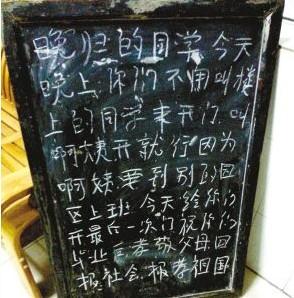 晚归的同学今天
晚上你们不用叫楼
上的同学来开门.叫
啊姨开就行因为
啊姨要到别的园
区上班.今天给你们
开最后一次门祝你们
毕业后孝敬父母回
报社会.报孝祖国